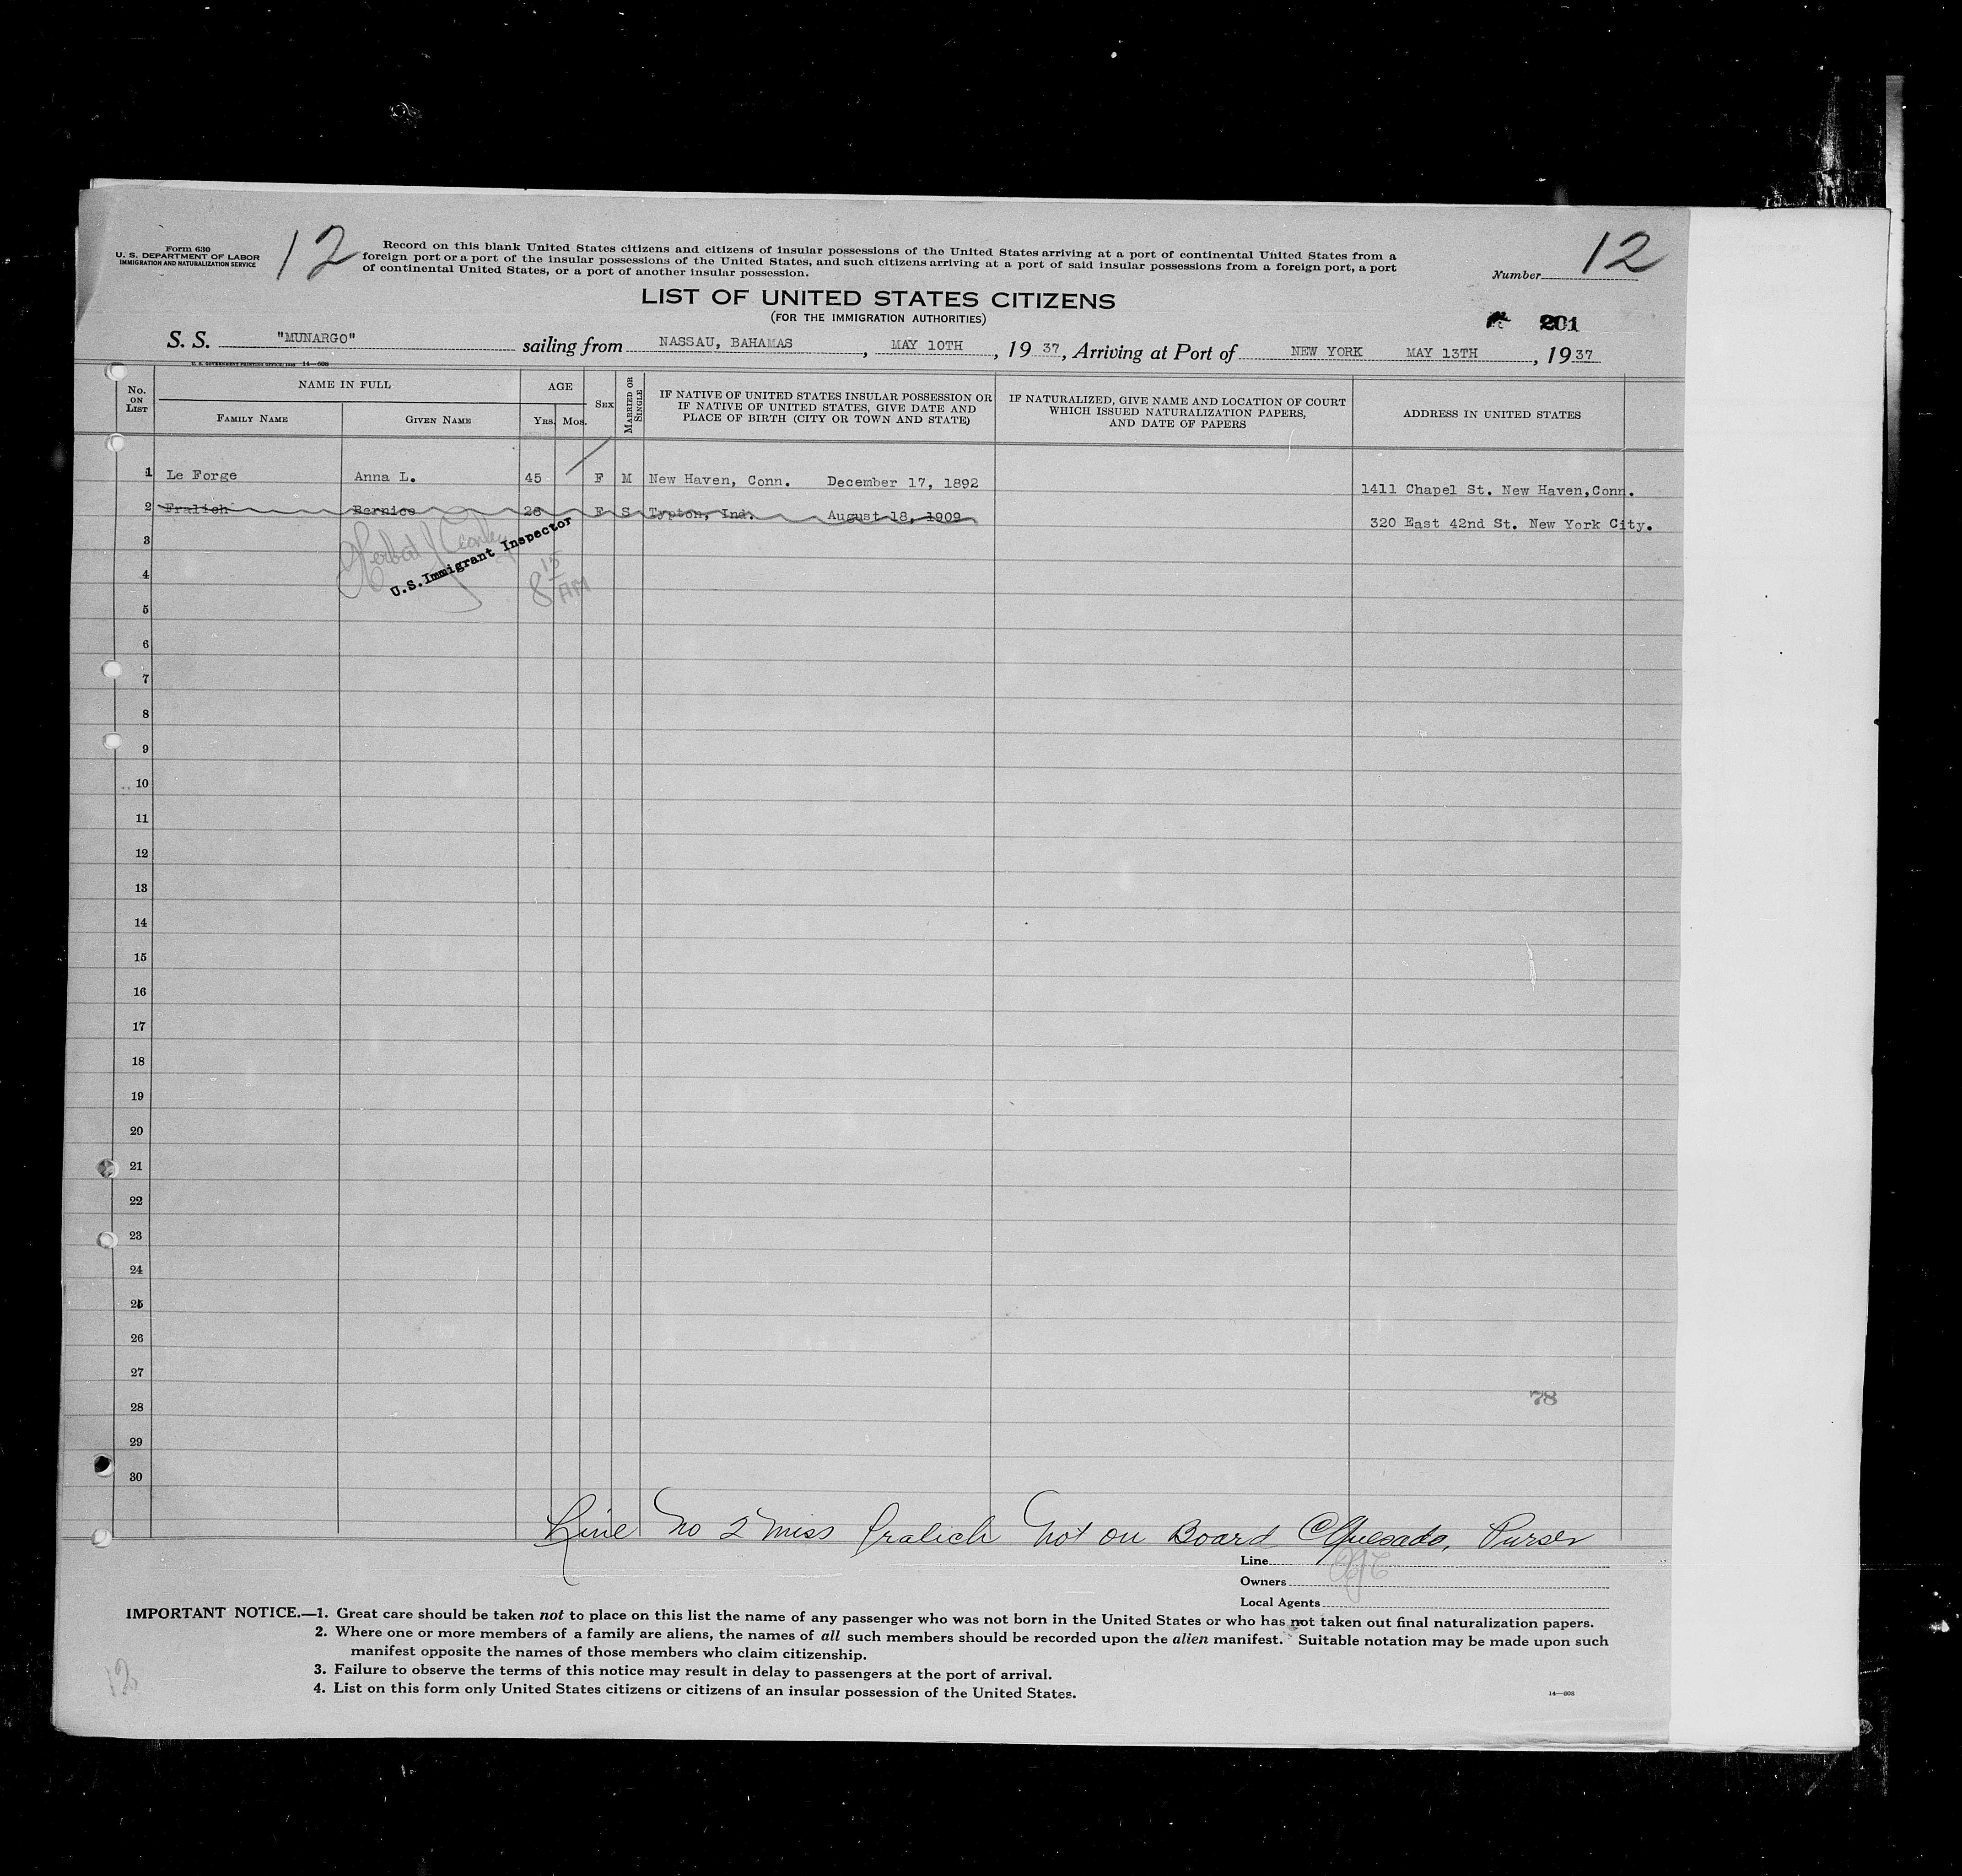 Form 630
U. S. DEPARTMENT OF LABOR
IMMIGRATION AND NATURALIZATION SERVICE
12
Record on this blank United States citizens and citizens of insular possessions of the United States arriving at a port of continental United States from a
foreign port or a port of the insular possessions of the United States, and such citizens arriving at a port of said insular possessions from a foreign port, a port
of continental United States, or a port of another insular possession.
Number 12
LIST OF UNITED STATES CITIZENS
(FOR THE IMMIGRATION AUTHORITIES)
201
S. S. "MUNARGO" sailing from NASSAU, BAHAMAS, MAY 10TH, 19 37, Arriving at Port of NEW YORK MAY 13TH, 19 37
No. ON LIST
NAME IN FULL
FAMILY NAME
GIVEN NAME
AGE
YRS. MOS.
SEX
MARRIED OR SINGLE
IF NATIVE OF UNITED STATES INSULAR POSSESSION OR
IF NATIVE OF UNITED STATES, GIVE DATE AND
PLACE OF BIRTH (CITY OR TOWN AND STATE)
IF NATURALIZED, GIVE NAME AND LOCATION OF COURT
WHICH ISSUED NATURALIZATION PAPERS,
AND DATE OF PAPERS
ADDRESS IN UNITED STATES
1 Le Forge Anna L. 45 F M New Haven, Conn. December 17, 1892 1411 Chapel St. New Haven, Conn.
2 Fralich Bernice 28 F S Typton, Ind. August 18, 1909 320 East 42nd St. New York City.
U.S. Immigrant Inspector
8 15 AM
3
4
5
6
7
8
9
10
11
12
13
14
15
16
17
18
19
20
21
22
23
24
25
26
27
78
28
29
30
Line No 2 Miss Fralich Not on Board C Quesado, Purser
Line
Owners
Local Agents
IMPORTANT NOTICE.—1. Great care should be taken not to place on this list the name of any passenger who was not born in the United States or who has not taken out final naturalization papers.
2. Where one or more members of a family are aliens, the names of all such members should be recorded upon the alien manifest. Suitable notation may be made upon such
manifest opposite the names of those members who claim citizenship.
3. Failure to observe the terms of this notice may result in delay to passengers at the port of arrival.
4. List on this form only United States citizens or citizens of an insular possession of the United States.
14—608
12